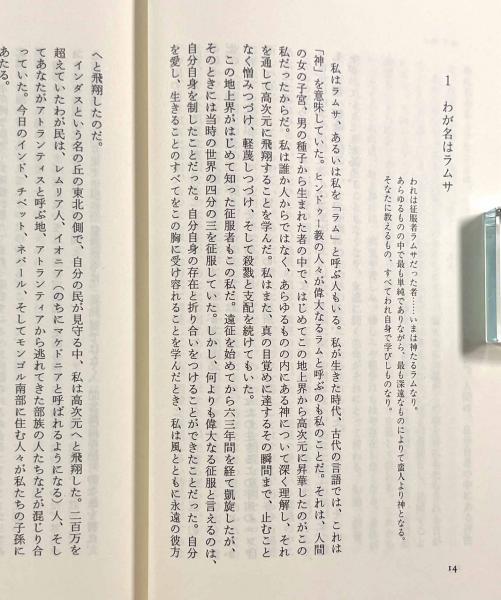 1　わが名はラムサ
われは征服者ラムサだった者……いまは神たるラムなり。
あらゆるものの中で最も単純でありながら、最も深遠なものによりて蛮人より神となる。
そなたに教えるもの、すべてわれ自身で学びしものなり。
私はラムサ、あるいは私を「ラム」と呼ぶ人もいる。私が生きた時代、古代の言語では、これは
「神」を意味していた。ヒンドゥー教の人々が偉大なるラムと呼ぶのも私のことだ。それは、人間
の女の子宮、男の種子から生まれた者の中で、はじめてこの地上界から高次元に昇華したのがこの
私だったからだ。私は誰か人からではなく、あらゆるものの内にある神について深く理解し、それ
を通して高次元に飛翔することを学んだ。私はまた、真の目覚めに達するその瞬間まで、止むこと
なく憎みつづけ、軽蔑しつづけ、そして殺戮と支配を続けてもいた。
この地上界がはじめて知った征服者もこの私だ。遠征を始めてから六三年間を経て凱旋したが、
そのときには当時の世界の四分の三を征服していた。しかし、何よりも偉大なる征服と言えるのは、
自分自身を制したことだった。自分自身の存在と折り合いをつけることができたことだった。自分
を愛し、生きることのすべてをこの胸に受け容れることを学んだとき、私は風とともに永遠の彼方
14
へと飛翔したのだ。
インダスという名の丘の東北の側で、自分の民が見守る中、私は高次元へと飛翔した。二百万を
超えていたわが民は、レムリア人、イオニア（のちにマケドニアと呼ばれるようになる）人、そし
てあなたがアトランティスと呼ぶ地、アトランティアから逃れてきた部族の人たちなどが混じり合
っていた。今日のインド、チベット、ネパール、そしてモンゴル南部に住む人々が私たちの子孫に
あたる。